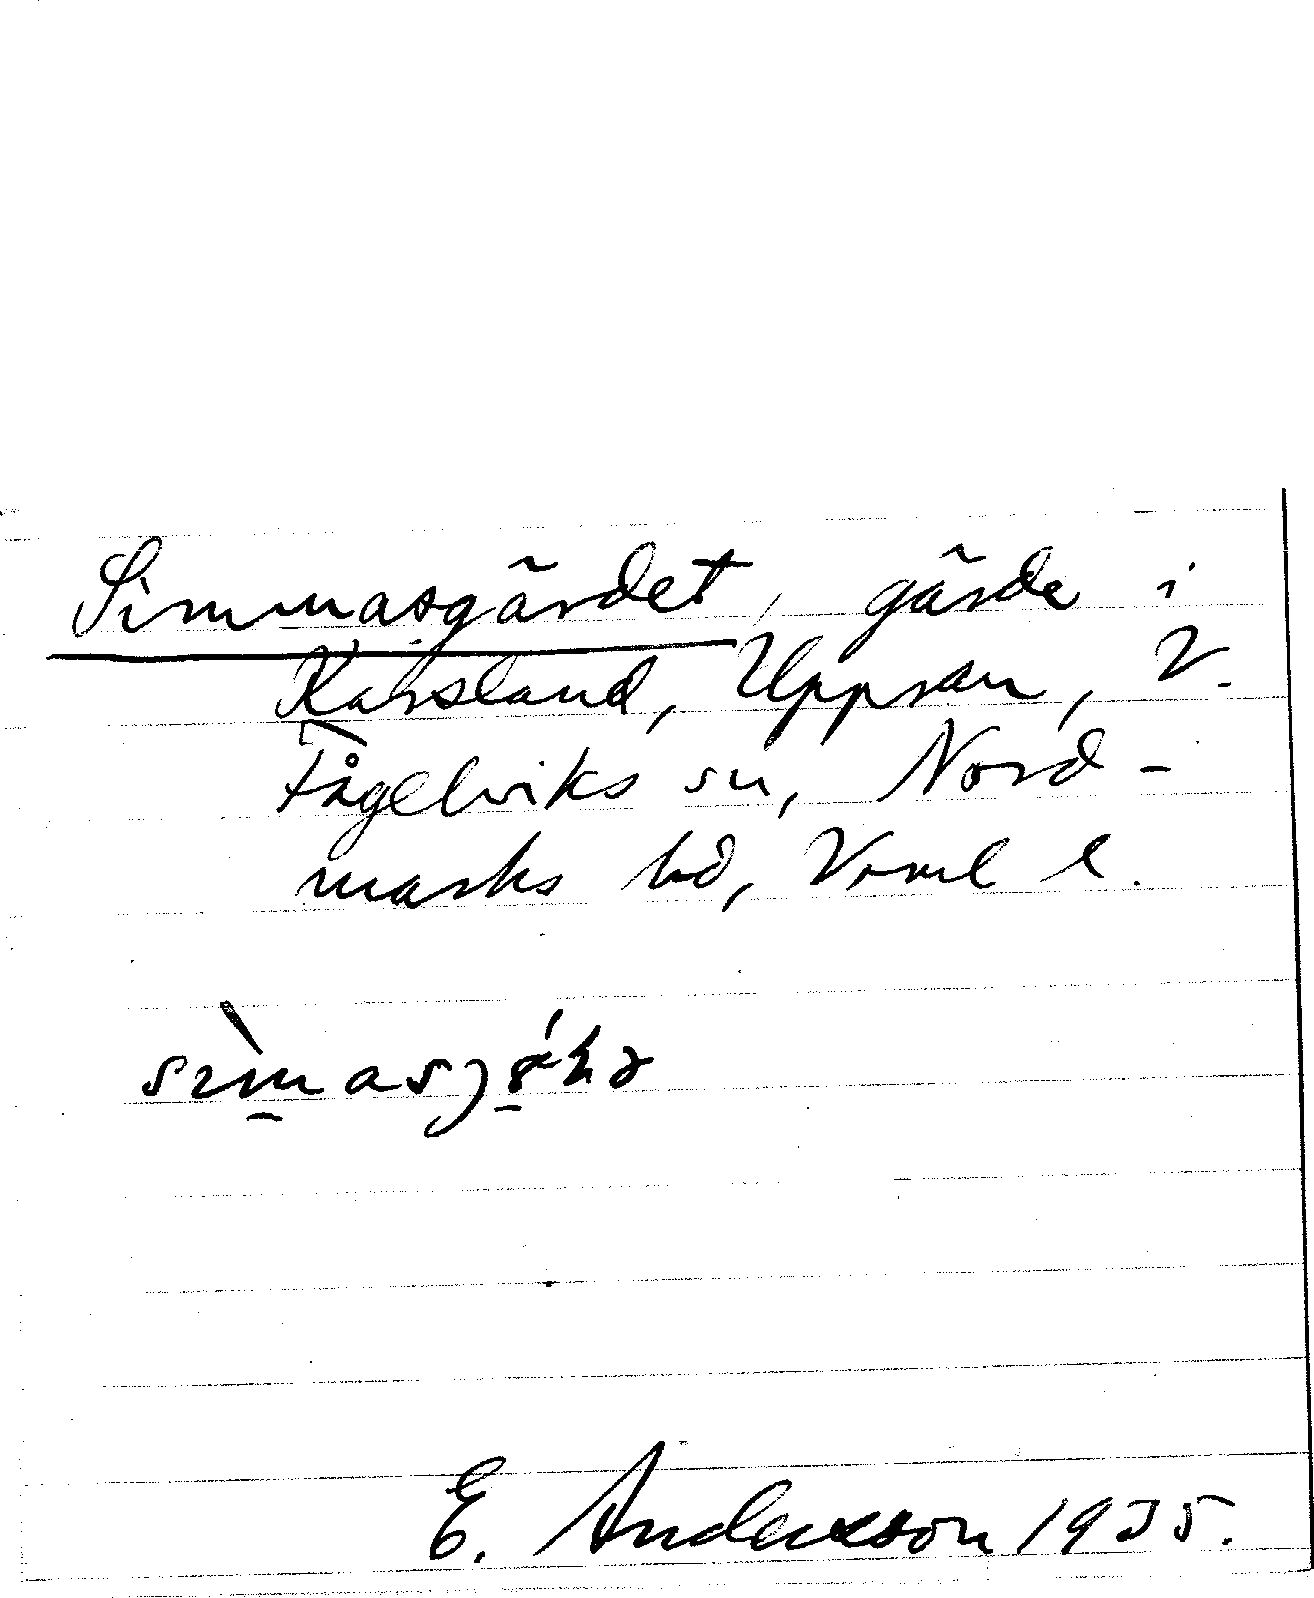 Simmasgärdet, gärde i
Karsland, Uppran, V.
Fågelviks sn, Nord-
marks hd, Vrml l.
E. Andersson 1935.